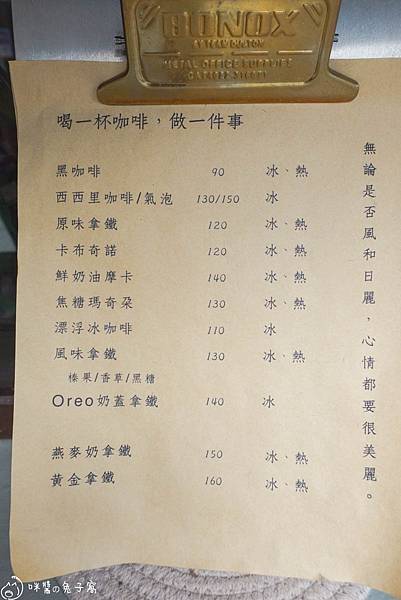 "BONOX"
BY TEAM DUMTOM
METAL OFFICE SUPPLIES
喝一杯咖啡，做一件事
黑咖啡 90 冰、熱
西西里咖啡/氣泡 130/150 冰
原味拿鐵 120 冰、熱
卡布奇諾 120 冰、熱
鮮奶油摩卡 140 冰、熱
焦糖瑪奇朶 130 冰、熱
漂浮冰咖啡 110 冰
風味拿鐵 130 冰、熱
榛果/香草/黑糖
Oreo奶蓋拿鐵 140 冰
燕麥奶拿鐵 150 冰、熱
黃金拿鐵 160 冰、熱
無論是否風和日麗，心情都要很美麗。
咪醬の兔子窩